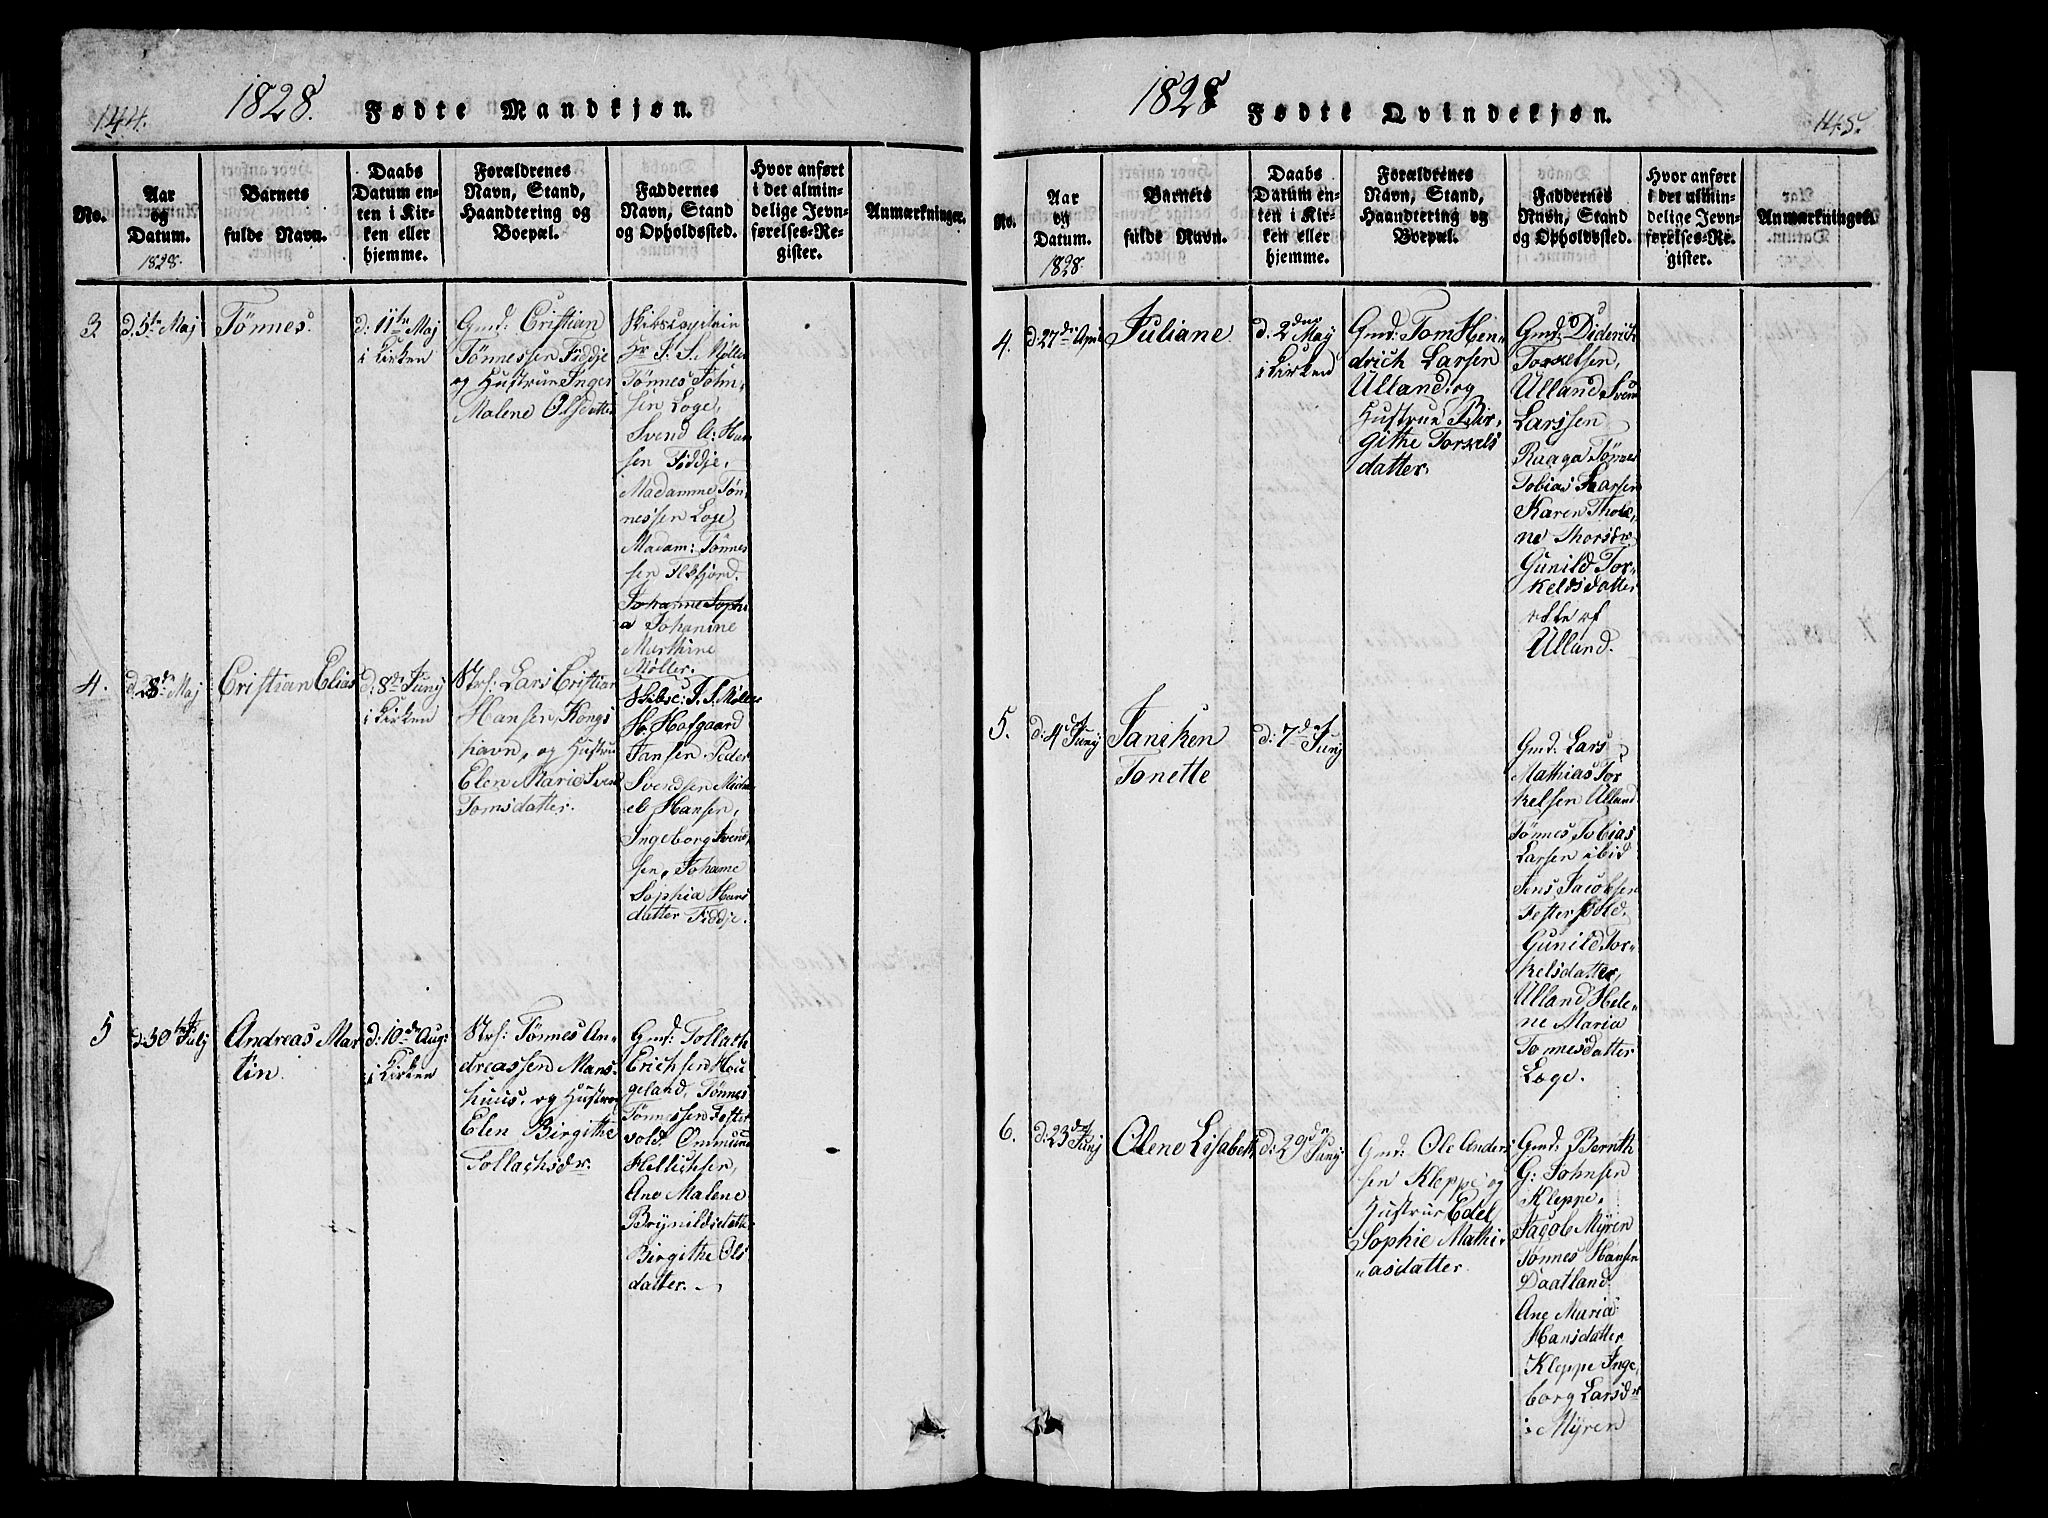 144.
1828.
Fødte Mandkjøn.
No.
Aar
og
Datum.
1828.
Barnets
fulde Navn.
Daabs
Datum en-
ten i Kir-
ken eller
hjemme.
Forældrenes
Navn, Stand,
Haandtering og
Boepæl.
Faddernes
Navn, Stand
og Opholdssted.
Hvor anført
i det almin-
delige Jevn-
førelses-Re-
gister.
Anmærkninger.
3
d. 5te Maj
Tønnes.
d: 11te Maj
i Kirken
Gmd: Cristian
Tønnessen Fiddje
og Hustrue Inger
Malene Olsdatter
Hr I. S. Møller
Tønnes John,
sen Loge,
Svend A: Han
sen Fiddje,
Madamme Tøn,
nessen Loge
Madam: Tønnes
sen Flikfjord.
Johanne Sophi
a Johanine
Marthine
Møller.
4.
d. 28de Maj
Cristian Elias
d: 8de Juny
i Kirken
Str: Lars Cristian
Hansen, Kongs
havn, og Hustrue
Elen Marie Svend
Tomsdatter.
Skibsc: I. S. Møller
Hr. Hofgaard
Jansen Peder
Svendsen
el Hansen,
Ingeborg Svend,
sen, Johanne
Sophia Hans
datter Fiddje.
5
d. 30te July
Andreas Mar
tin.
d: 10de Aug:
i Kirken
Str: Tønnes An,
dreassen Mans,
huus, og Hustroe
Elen Birgithe
Tollachsdr.
Gmd: Tollach
Erichsen Hou
geland, Tønnes
Tønnessen Fester
vold. Ommund
Hellichsen,
Ane Malene
Brynildsdatte
Birgithe Ols
datter.
1828
Fødte Qvindekjøn.
145.
No.
Aar
og
Datum.
1828.
Barnets
fulde Navn.
Daabs
Datum en-
ten i Kir-
ken eller
hjemme.
Forældrenes
Navn, Stand,
Haandtering og
Boepæl.
Faddernes
Navn, Stand
og Opholdssted.
Hvor anført
i det almin-
delige Jevn-
førelses-Re-
gister.
Anmærkninger.
4.
d. 27de Apr
Juliane
d: 2den May
i Kirken
Gmd: Tom Hen-
drich Larsen
Ulland, og
Hustrue Bir,
githe Torkels
datter.
Gmd: Diderich
Torkelsen,
Ulland Sven
Larssen
Raaga Tønnes
Tobias Larsen
Karen Thom,
ne Thors
Gunild Tor-
keldsdatter
alle af
Ulland.
5.
d: 4de Juny
Taniken
Tonette
d: 7de Juny
Gmd: Lars
Mathias Tor
kelsen Ulland
Tønnes Tobias
Larsen ibid
Jens Jacobsen
Festervold.
Gunild Tor-
kelsdatter,
Ulland Hele-
ne Maria
Tønnesdatter
Loge.
6.
d: 23de Juny
Olene Lisabeth
d: 29de Juny
Gmd: Ole Anders
sen Kleppe og
Hustrue Edel
Sophie Mathi-
asdatter
Gmd: Bernth
G: Johnsen
Kleppe,
Jacob Myren
Tønnes Hansen
Daatland
Ane Maria
Hansdatter
Kleppe Inge
borg Larsdr
i Myren